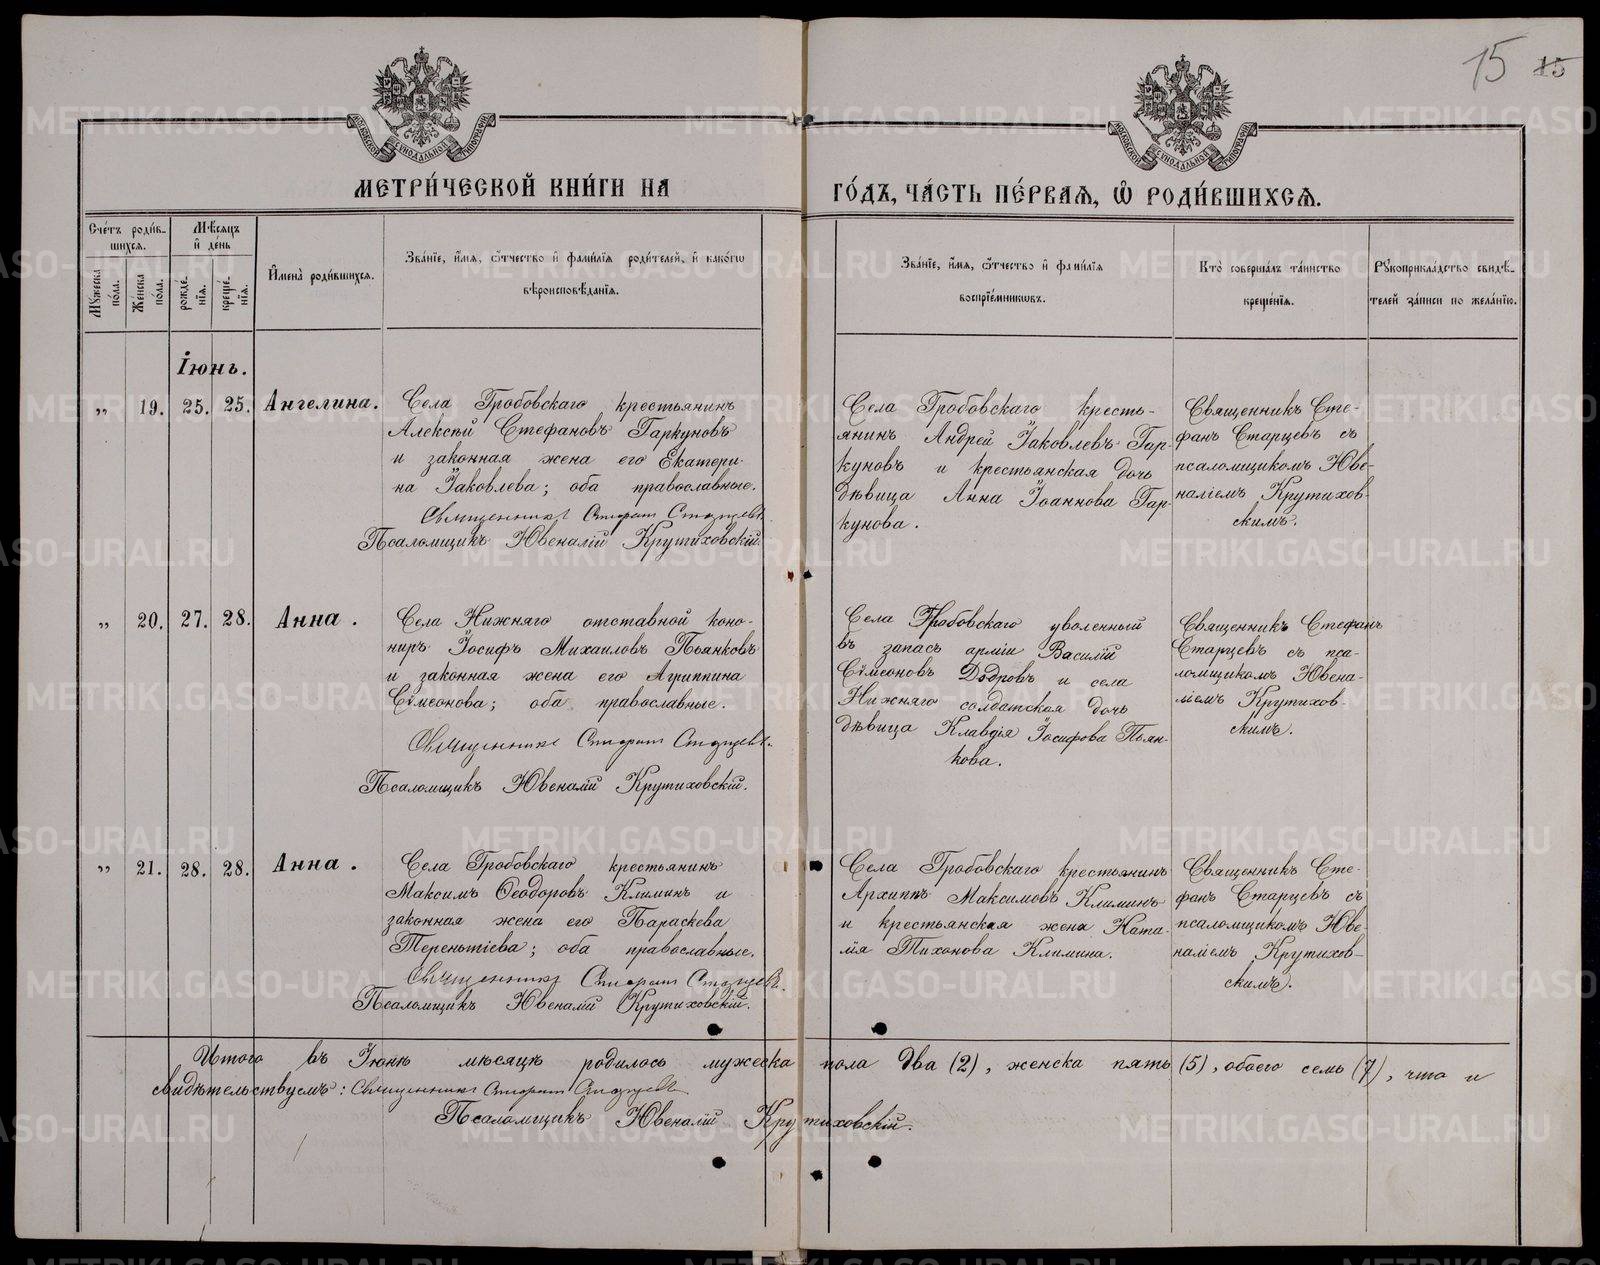 15 15
МОСКОВСКОЙ СѴНОДАЛЬНОЙ ТИПОГРАФІИ
МОСКОВСКОЙ СѴНОДАЛЬНОЙ ТИПОГРАФІИ
МЕТРИ́ЧЕСКОЙ КНИ́ГИ НА
ГО́ДЪ, ЧА́СТЬ ПЕ́РВАѦ, Ѡ҆ РОДИ́ВШИХСѦ.
Сче́тъ роди́в-
шихсѧ.
Мꙋ́жеска по́ла.
Же́нска по́ла.
Мѣ́сѧцъ
и҆ де́нь
рожде́-
нїѧ.
креще́-
нїѧ.
И҆мена̀ роди́вшихсѧ.
Зва́нїе, и҆́мѧ, ѻ҆́тчество и҆ фами́лїѧ роди́телей, и҆ како́гѡ
вѣроисповѣ́данїѧ.
Зва́нїе, и҆́мѧ, ѻ҆́тчество и҆ фами́лїѧ
воспрїе́мникѡвъ.
Кто̀ соверша́лъ та́инство
креще́нїѧ.
Рꙋкоприкла́дство свидѣ́-
телей за́писи по жела́нїю.
Іюнь.
„ 19. 25. 25. Ангелина.
Села Гробовскаго крестьянинъ
Алексѣй Стефановъ Гаркуновъ
и законная жена его Екатери-
на Іаковлева; оба православные.
Священникъ Стефанъ Старцевъ.
Псаломщикъ Ювеналій Крутиховскій.
Села Гробовскаго кресть-
янинъ Андрей Іаковлевъ Гар-
куновъ и крестьянская дочь
дѣвица Анна Іоаннова Гар-
кунова.
Священникъ Сте-
фанъ Старцевъ съ
псаломщикомъ Юве-
наліемъ Крутихов-
скимъ.
„ 20. 27. 28. Анна.
Села Нижняго отставной коно-
ниръ Іосифъ Михаиловъ Пьянковъ
и законная жена его Агриппина
Сѵмеонова; оба православные.
Священникъ Стефанъ Старцевъ.
Псаломщикъ Ювеналій Крутиховскій.
Села Гробовскаго уволенный
въ запасъ арміи Василій
Сѵмеоновъ Дѣдровъ и села
Нижняго солдатская дочь
дѣвица Клавдія Іосифова Пьян-
кова.
Священникъ Стефанъ
Старцевъ съ пса-
ломщикомъ Ювена-
ліемъ Крутихов-
скимъ.
„ 21. 28. 28. Анна.
Села Гробовскаго крестьянинъ
Максимъ Ѳеодоровъ Климинъ и
законная жена его Параскева
Тереньтіева; оба православные.
Священникъ Стефанъ Старцевъ.
Псаломщикъ Ювеналій Крутиховскій.
Села Гробовскаго крестьянинъ
Архиппъ Максимовъ Климинъ
и крестьянская жена Ната-
лія Тихонова Климина.
Священникъ Сте-
фанъ Старцевъ съ
псаломщикомъ Юве-
наліемъ Крутихов-
скимъ.
Итого въ Іюнѣ мѣсяцѣ родилось мужеска пола два (2), женска пять (5), обоего семь (7), что и
свидѣтельствуемъ: Священникъ Стефанъ Старцевъ
Псаломщикъ Ювеналій Крутиховскій.
METRIKI.GASO-URAL.RU